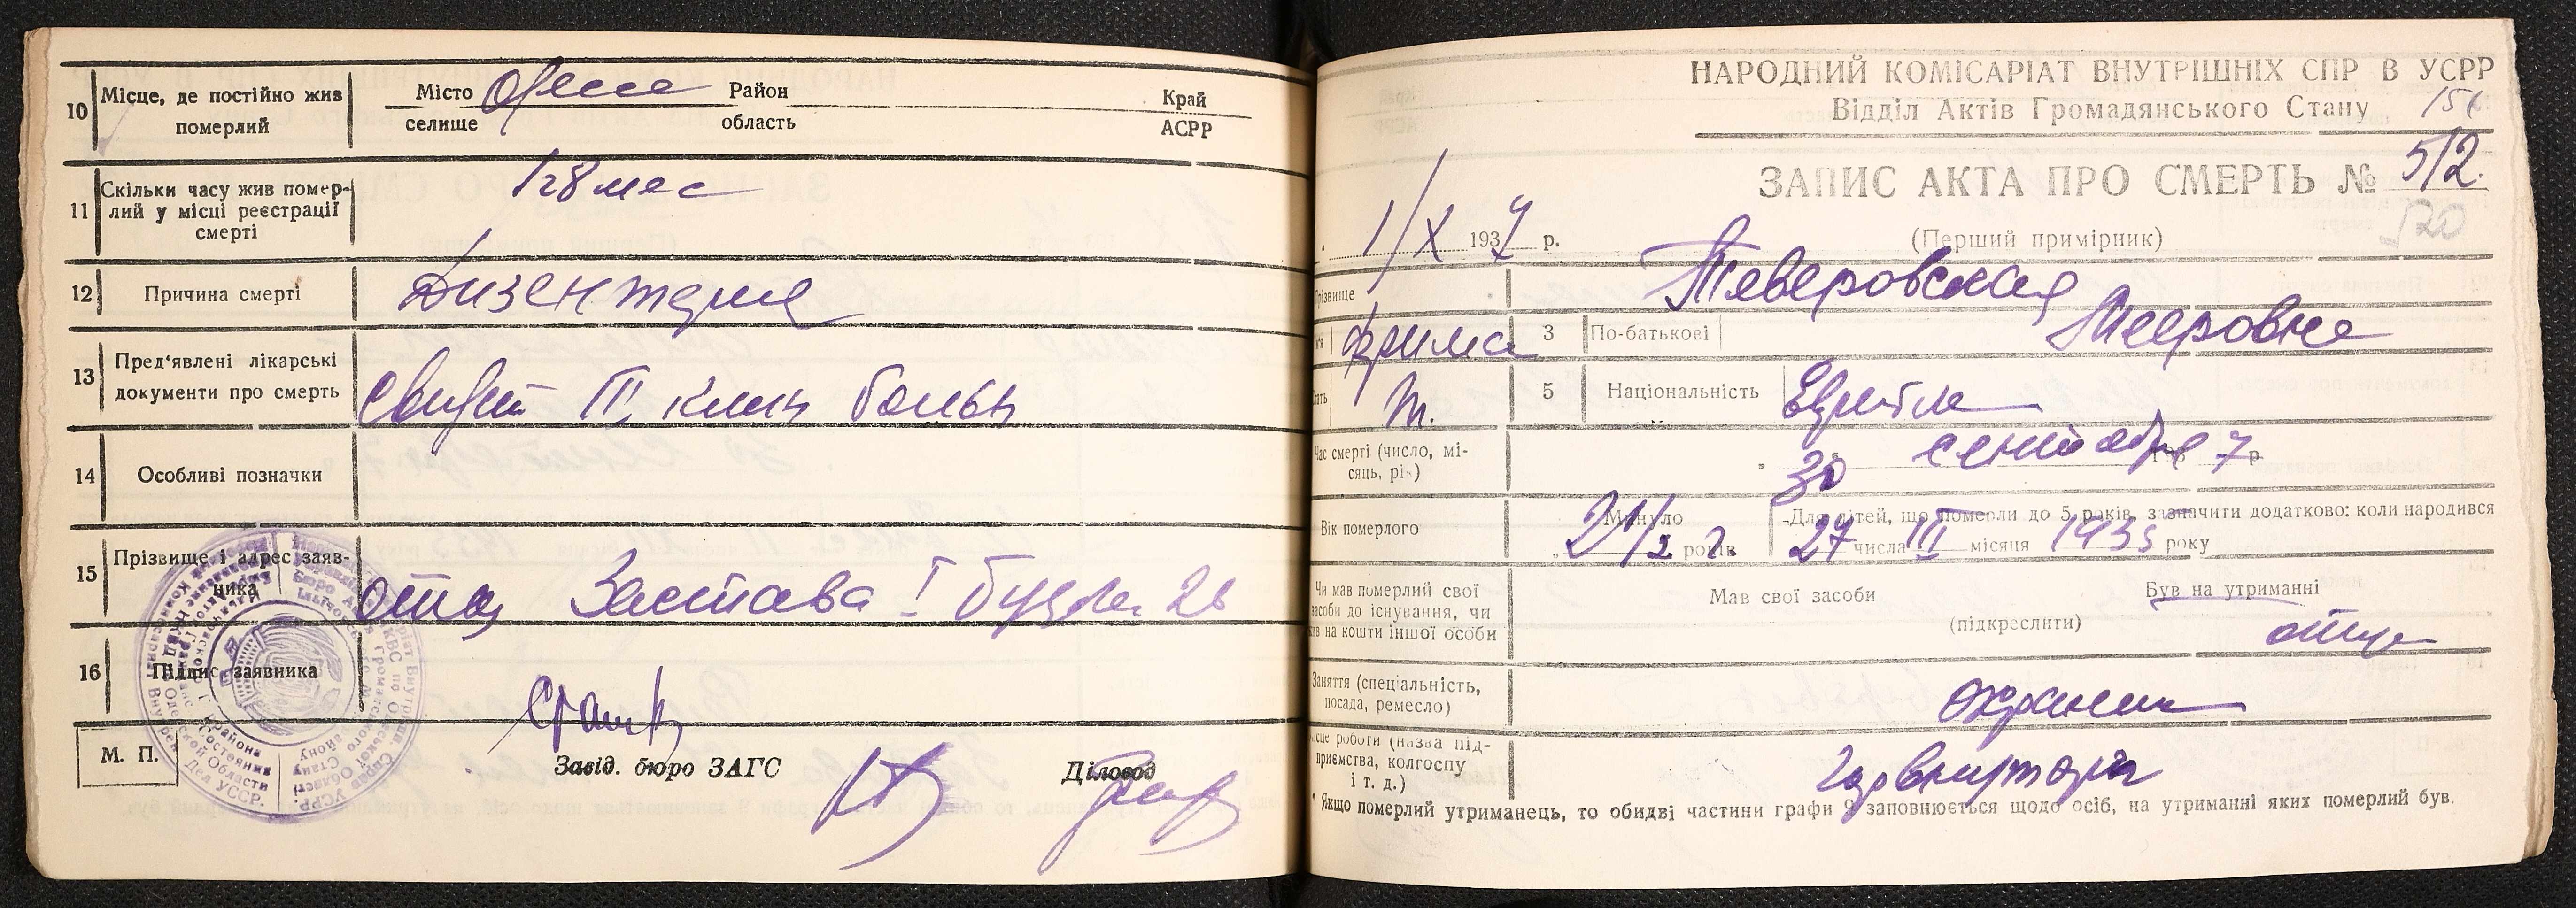 10 Місце, де постійно жив померлий
Місто Одесса Район Край
селище область АСРР
11 Скільки часу жив помер-
лий у місці реєстрації
смерті
1 г 8 мес
12 Причина смерті Дизентерия
13 Пред'явлені лікарські
документи про смерть
свидет III клин больн
14 Особливі позначки
15 Прізвище і адрес заяв-
ника
отец Застава I 26
16 Підпис заявника
М. П.
Завід. бюро ЗАГС Діловод
НАРОДНИЙ КОМІСАРІАТ ВНУТРІШНІХ СПР В УСРР
Відділ Актів Громадянського Стану
ЗАПИС АКТА ПРО СМЕРТЬ № 512.
520
1/X 1937 р. (Перший примірник)
різвище Теверовская
Фрима 3 По-батькові Мееровна
5 Національність Еврейка
Час смерті (число, мі-
сяць, рік)
30 сентября 7 р
Вік померлого
Минуло
2 1/2 років г.
Для дітей, що померли до 5 років, зазначити додатково: коли народився
27 числа III місяця 1935 року
Чи мав померлий свої
засоби до існування, чи
жив на кошти іншої особи
Мав свої засоби Був на утриманні
(підкреслити) отца
Заняття (спеціальність,
посада, ремесло)
охранник
Місце роботи (назва під-
приємства, колгоспу
і т. д.)
* Якщо померлий утриманець, то обидві частини графи 9 заповнюється щодо осіб, на утриманні яких померлий був.